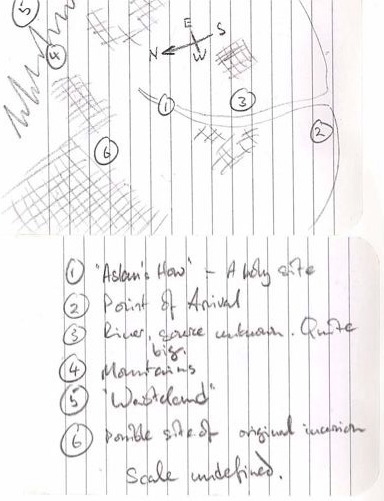 5
E
S
4
N
W
1
3
2
6
1 "Aslan's How" - A holy site
2 Point of Arival
3 River, source unknown. Quite
big.
4 Mountains
5 "Wasteland"
6 Possible site of original incursion
Scale undefined.